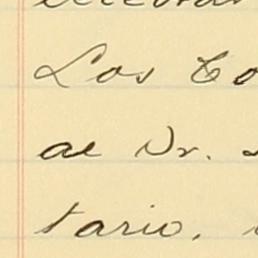 Los Co
al Dr.
tario.